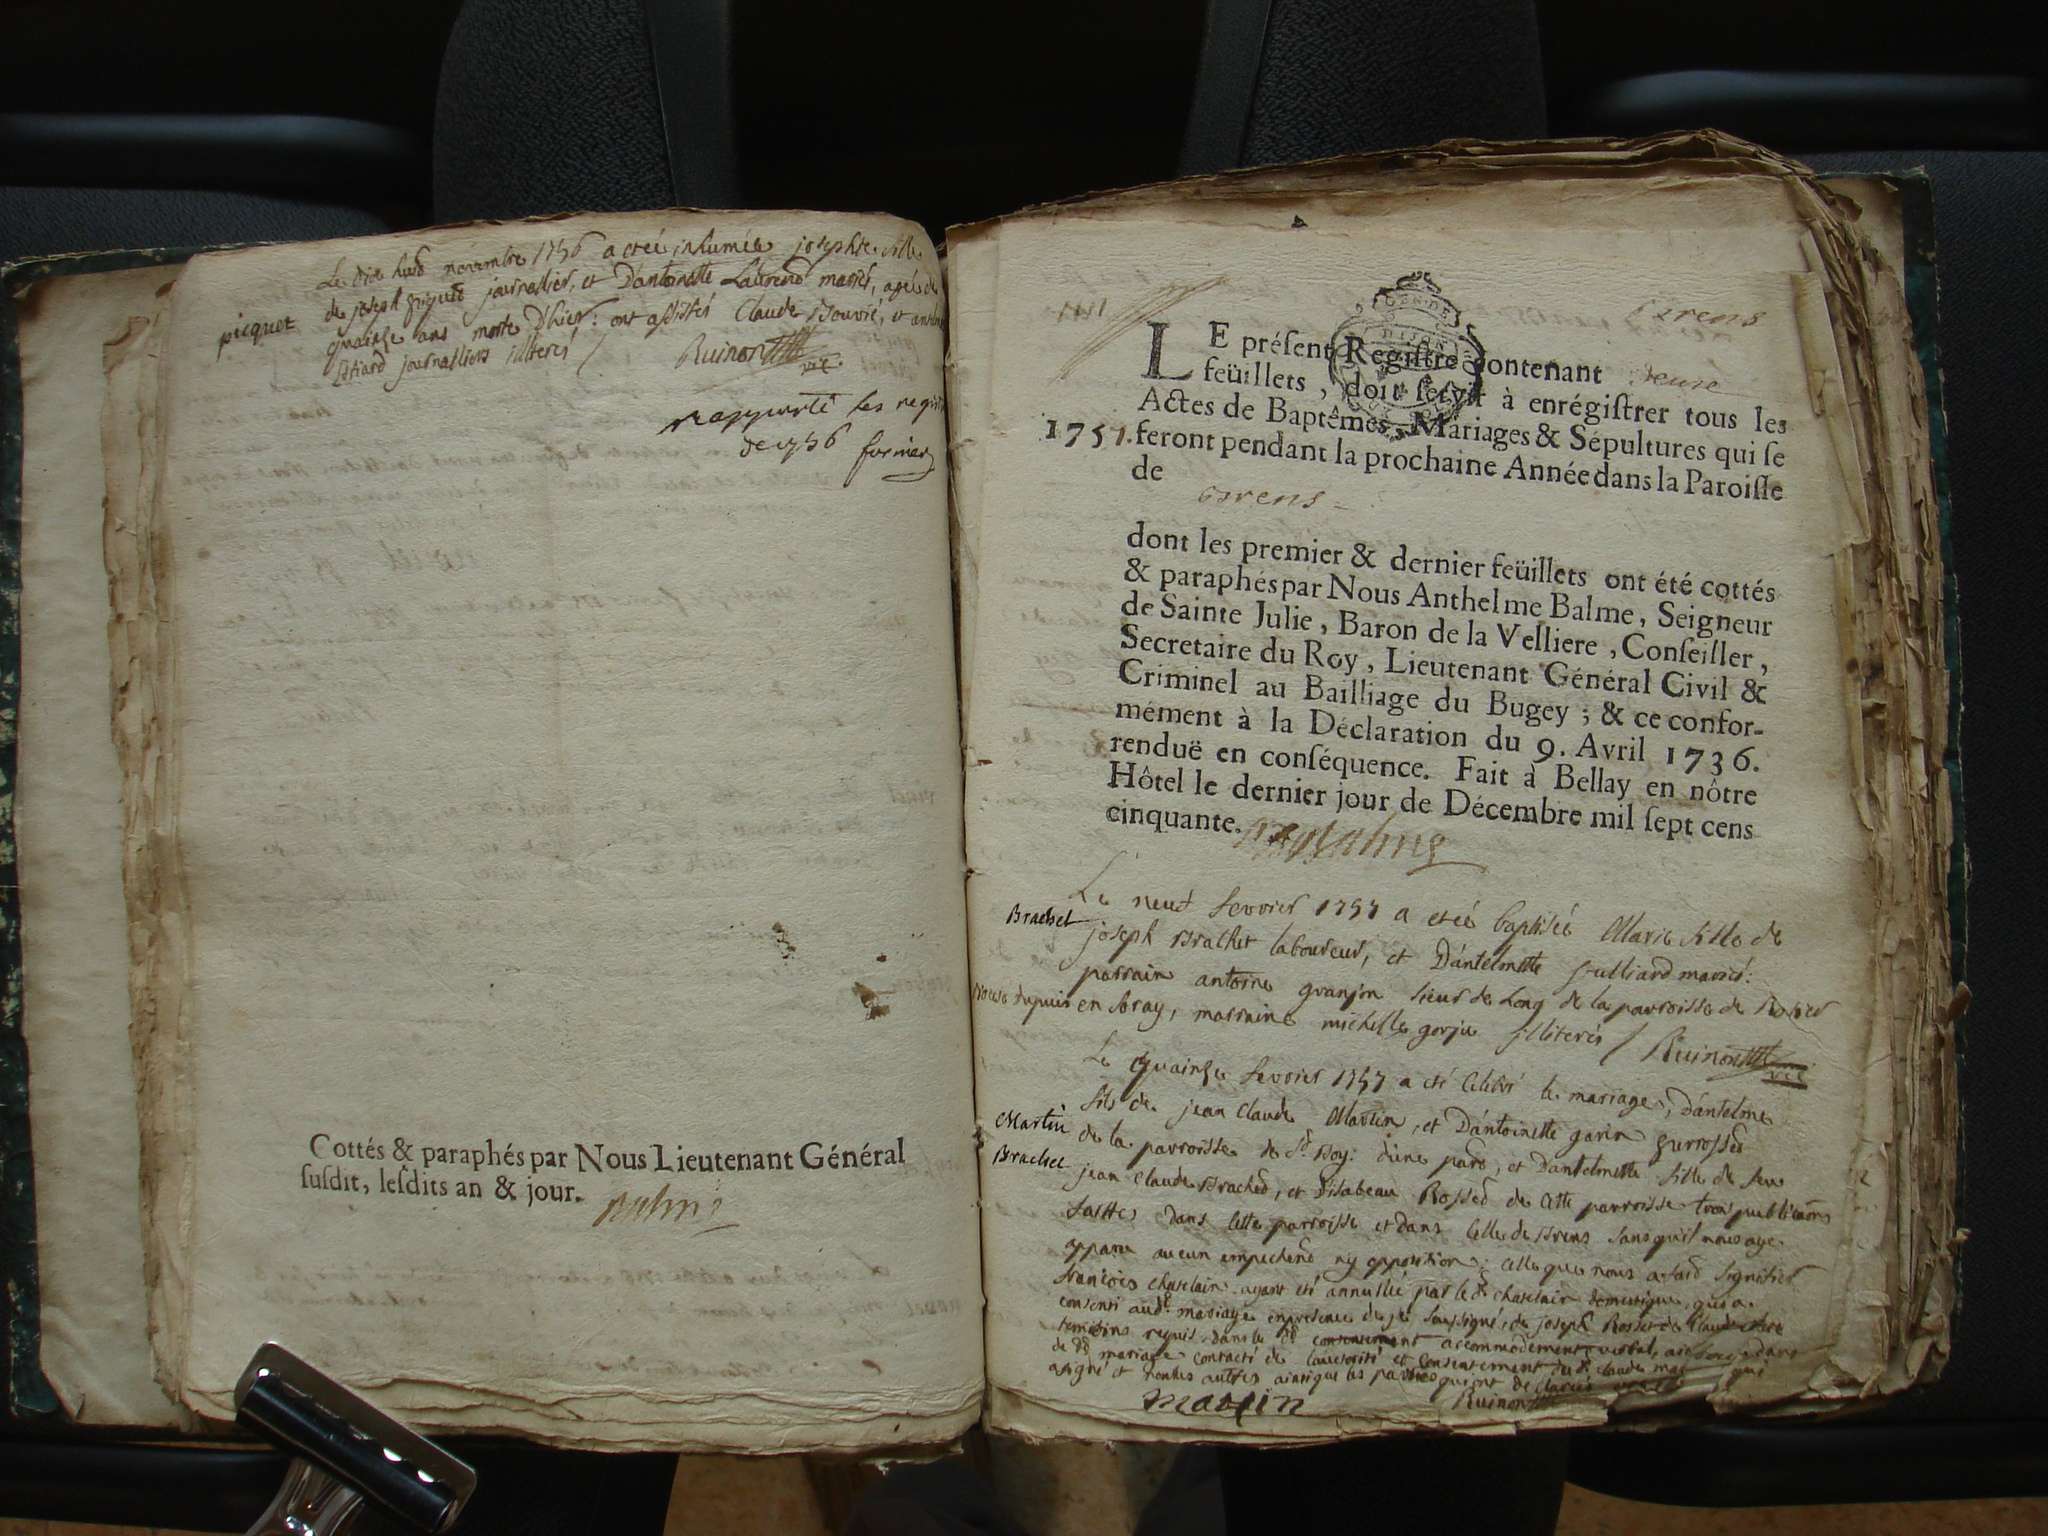 Le dix huid novembre 1756 a eteé inhumée josephte fille
de joseph piquet journallier, et D'antoinette Laurend mariés, agée de
picquet
quainze ans morte D'hier: ont assistés Claude Bouvié, et antoine
journalliers illiterés /
Ruinon
vic.
rapporté les regist
de 1756
Cottés & paraphés par Nous Lieutenant Général
suſdit, leſdits an & jour.
Balme
Brens
LE préſent Regiſtre contenant deuxe
feüillets, doit ſervir à enrégiſtrer tous les
Actes de Baptêmes, Mariages & Sépultures qui ſe
1757. feront pendant la prochaine Année dans la Paroiſſe
de Brens
dont les premier & dernier feüillets ont été cottés
& paraphés par Nous Anthelme Balme, Seigneur
de Sainte Julie, Baron de la Velliere, Conſeiller,
Secretaire du Roy, Lieutenant Général Civil &
Criminel au Bailliage du Bugey; & ce confor-
mément à la Déclaration du 9. Avril 1736.
renduë en conſéquence. Fait à Bellay en nôtre
Hôtel le dernier jour de Décembre mil ſept cens
cinquante. Balme
Le neuf fevrier 1757 a eteé baptisée Marie fille de
Brachet
joseph Brachet laboureur, et D'antelmette mariés:
parrain antoine granjon sieur de Long de la parroisse de
depuis en marraine michelle gorju illiterés / Ruinon
vic
Le quainze fevrier 1757 a été célébré le mariage, D'antelme
fils de jean Claude Martin, et D'antoinette garin
Martin
de la parroisse de St Boy: d'une pard, et D'antelmette fille de feu
Brachet
jean Claude Brached, et D'isabeau Rossed de cette parroisse trois publications
faittes dans cette parroisse et dans celle de Brens sans qu'il nous aye
apparu aucun empechend ny opposition; celle que nous a faid signifier
francois chatelain ayant été annullée par led chatelain qui a
consenti aud. mariage en presence de je soussigné, de joseph Rosset de Claude
temoins requis dans le consentement accommodement verbal,
de mariage contracté de l'auctorité et consentement du Sr claude mar qui
a signé et nonles autres ainsique les parties quiont de
martin
Ruinon